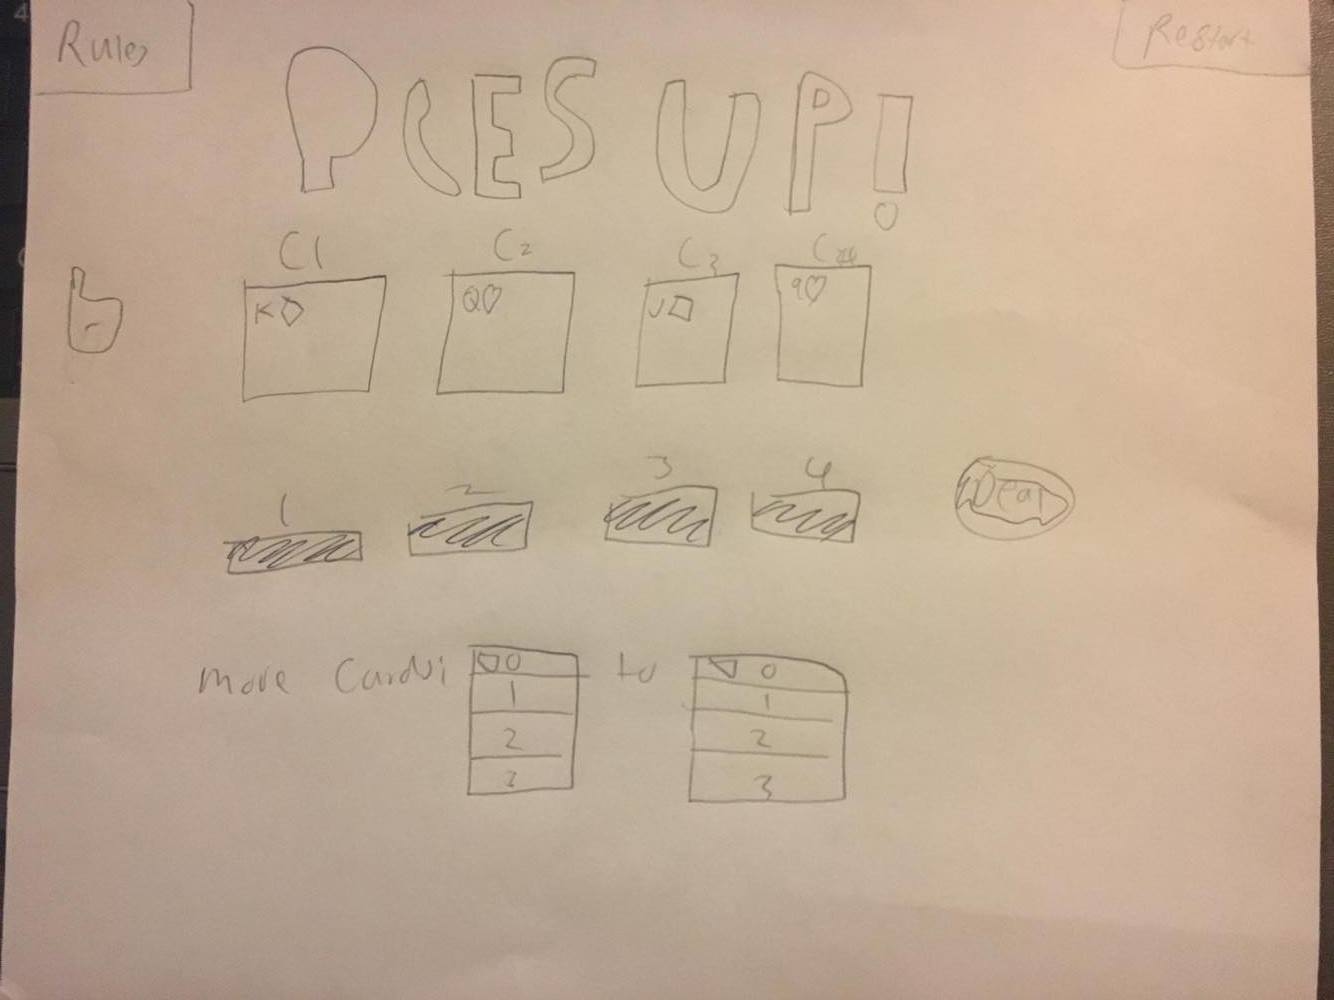 Rules
Restart
ACES UP!
C1 C2 C3
K♢ Q♡ J♢ 9♡
1 2 3 4
Deal
move Card: 0 to 0
1 1
2 2
3 3